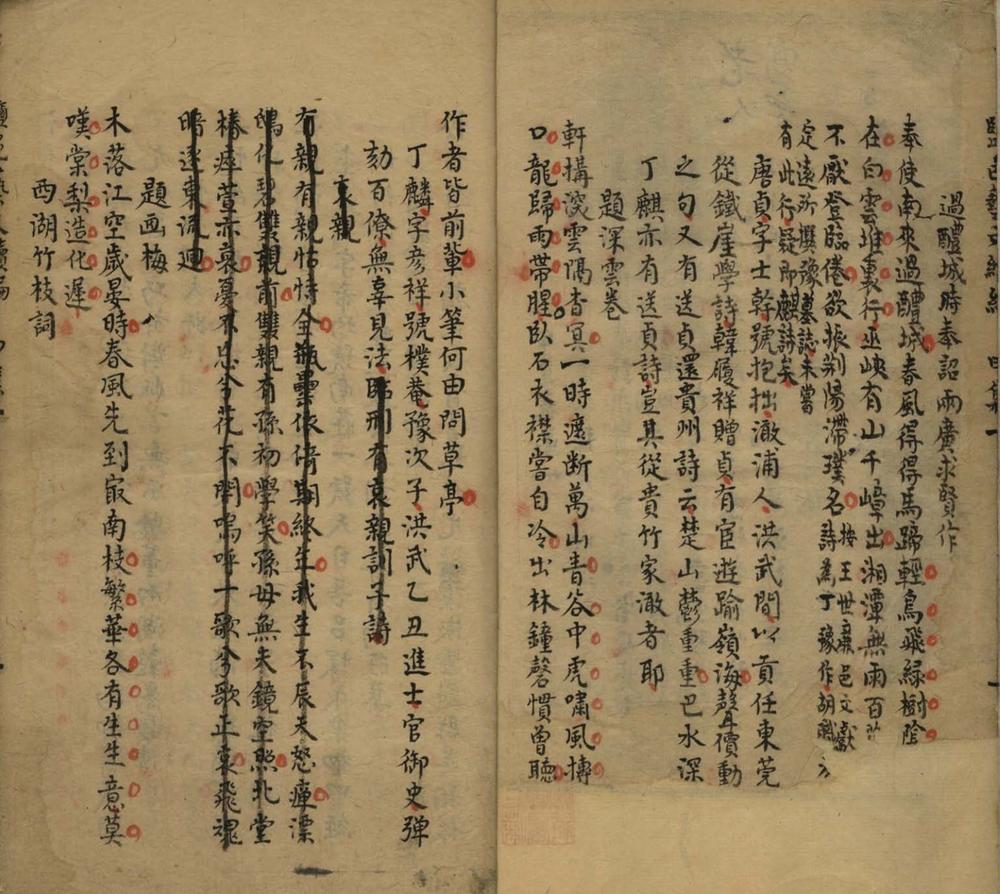 過醴城時奉詔兩廣求賢作
奉使南來過醴城春風得得馬蹄輕鳥飛綠樹陰
在白雲堆裏行巫峽有山千嶂出湘潭無雨百
不厭登臨倦欲振荆陽滯璞名 按王世 邑文獻詩為丁豫作胡
定遠所撰豫墓誌未嘗
有此行疑即麒詩矣
唐貞字士幹號抱拙澉浦人洪武間以貢任東莞
從鐵崖學詩韓履祥贈貞有宦遊踰嶺海聲價動
之句又有送貞還貴州詩云楚山鬱重重巴水深
丁麒亦有送貞詩豈其從貴竹家澉者耶
題深雲卷
軒搆深雲隔杳冥一時遮斷萬山青谷中虎嘯風摶
口龍歸雨帶腥臥石衣襟嘗自冷出林鐘磬慣曾聽
作者皆前輩小筆何由問草亭
丁麟字彦祥號樸菴豫次子洪武乙丑進士官御史彈
劾百僚無辜見法臨刑有哀親訓子詩
哀親
有親有親怙恃全 依倚期終年我生不辰天怒瘅漂
化碧雙親前雙親有孫初學笑孫母無夫鏡空照北堂
椿瘁萱亦衰憂不忘兮花不開嗚呼一歌兮歌正哀飛魂
暗逐東流迴
題画梅
木落江空歲晏時春風先到㝡南枝繁華各有生生意莫
嘆棠梨造化遲
西湖竹枝詞